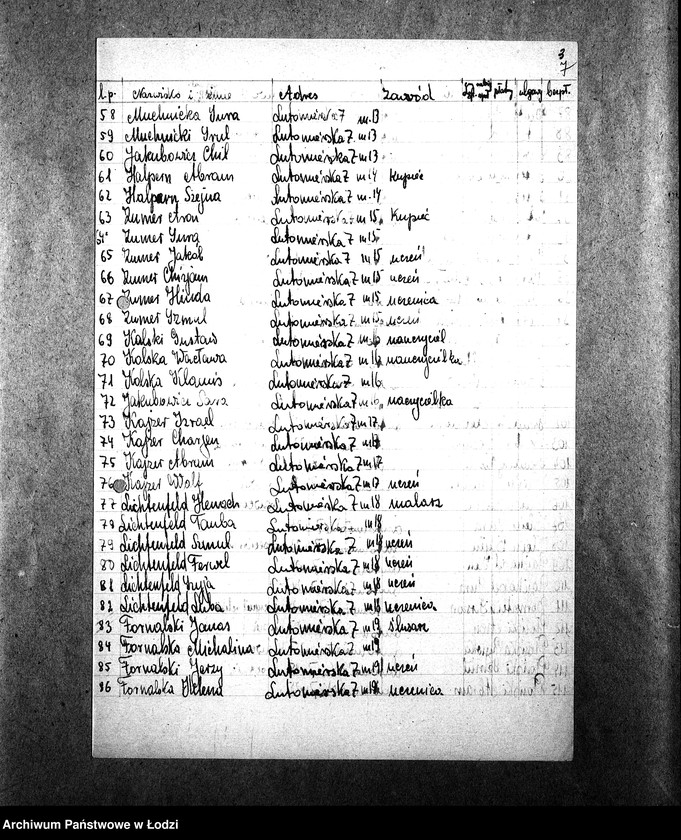 3
7
l.p. Nazwisko i imię Adres zawód płatny ulgowy bezpł.
58 Muchnicka Sura Lutomierska 7 m 13
59 Muchnicki Srul Lutomierska 7 m 13
60 Jakubowicz Chil Lutomierska 7 m 13
61 Halpern Abram Lutomierska 7 m 14 Kupiec
62 Halpern Szejna Lutomierska 7 m 14
63 Zumer Aron Lutomierska 7 m 15 Kupiec
64 Zumer Sura Lutomierska 7 m 15
65 Zumer Jakób Lutomierska 7 m 15 uczeń
66 Zumer Chizjam Lutomierska 7 m 15 uczeń
67 Zumer Hinda Lutomierska 7 m 15 uczenica
68 Zumer Szmul Lutomierska 7 m 15 uczeń
69 Kolski Gustaw Lutomierska 7 m 16 nauczyciel
70 Kolska Wacława Lutomierska 7 m 16 nauczycilka
71 Kolska Lutomierska 7 m 16
72 Jakubowicz Sara Lutomierska 7 m 16 nacycilka
73 Kajzer Izrael Lutomierska 7 m 17
74 Kajzer Lutomierska 7 m 17
75 Kajzer Abram Lutomierska 7 m 17
76 Kajzer Wolf Lutomierska 7 m 17 uczeń
77 Lichtenfeld Henoch Lutomierska 7 m 18 malarz
78 Lichtenfeld Tauba Lutomierska m 18
79 Lichtenfeld Szmul Lutomierska 7 m 18 uczeń
80 Lichtenfeld Fawel Lutomierska 7 m 18 uczeń
81 Lichtenfeld Lutomierska 7 m 18 uczeń
82 Lichtenfeld Liba Lutomierska 7 m 18 uczenica
83 Fornalski Janas Lutomierska 7 m 19 ślusarz
84 Fornalska Michalina Lutomierska 7 m 19
85 Fornalski Jerzy Lutomierska 7 m 19 uczeń
86 Fornalska Helena Lutomierska 7 m 19 uczenica
Archiwum Państwowe w Łodzi